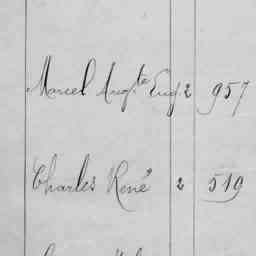 Marcel Aug.te Eug. 2 957
Charles René 2 519